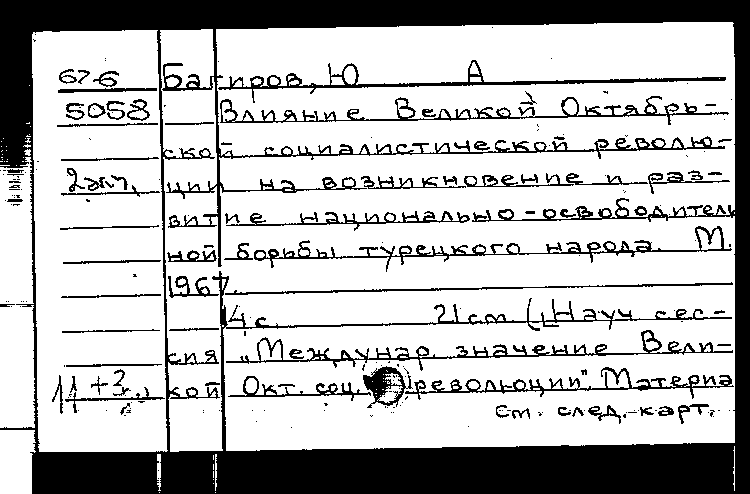 67-6 Багиров, Ю А
5058 Влияние Великой Октябрь-
ской социалистической револю-
2экз. ции на возникновение и раз-
витие национально-освободитель
ной борьбы турецкого народа. М.
1967.
14 с. 21 см (Науч сес-
сия „Междунар. значение Вели-
кой Окт. соц. революции". Материа
см. след. карт.